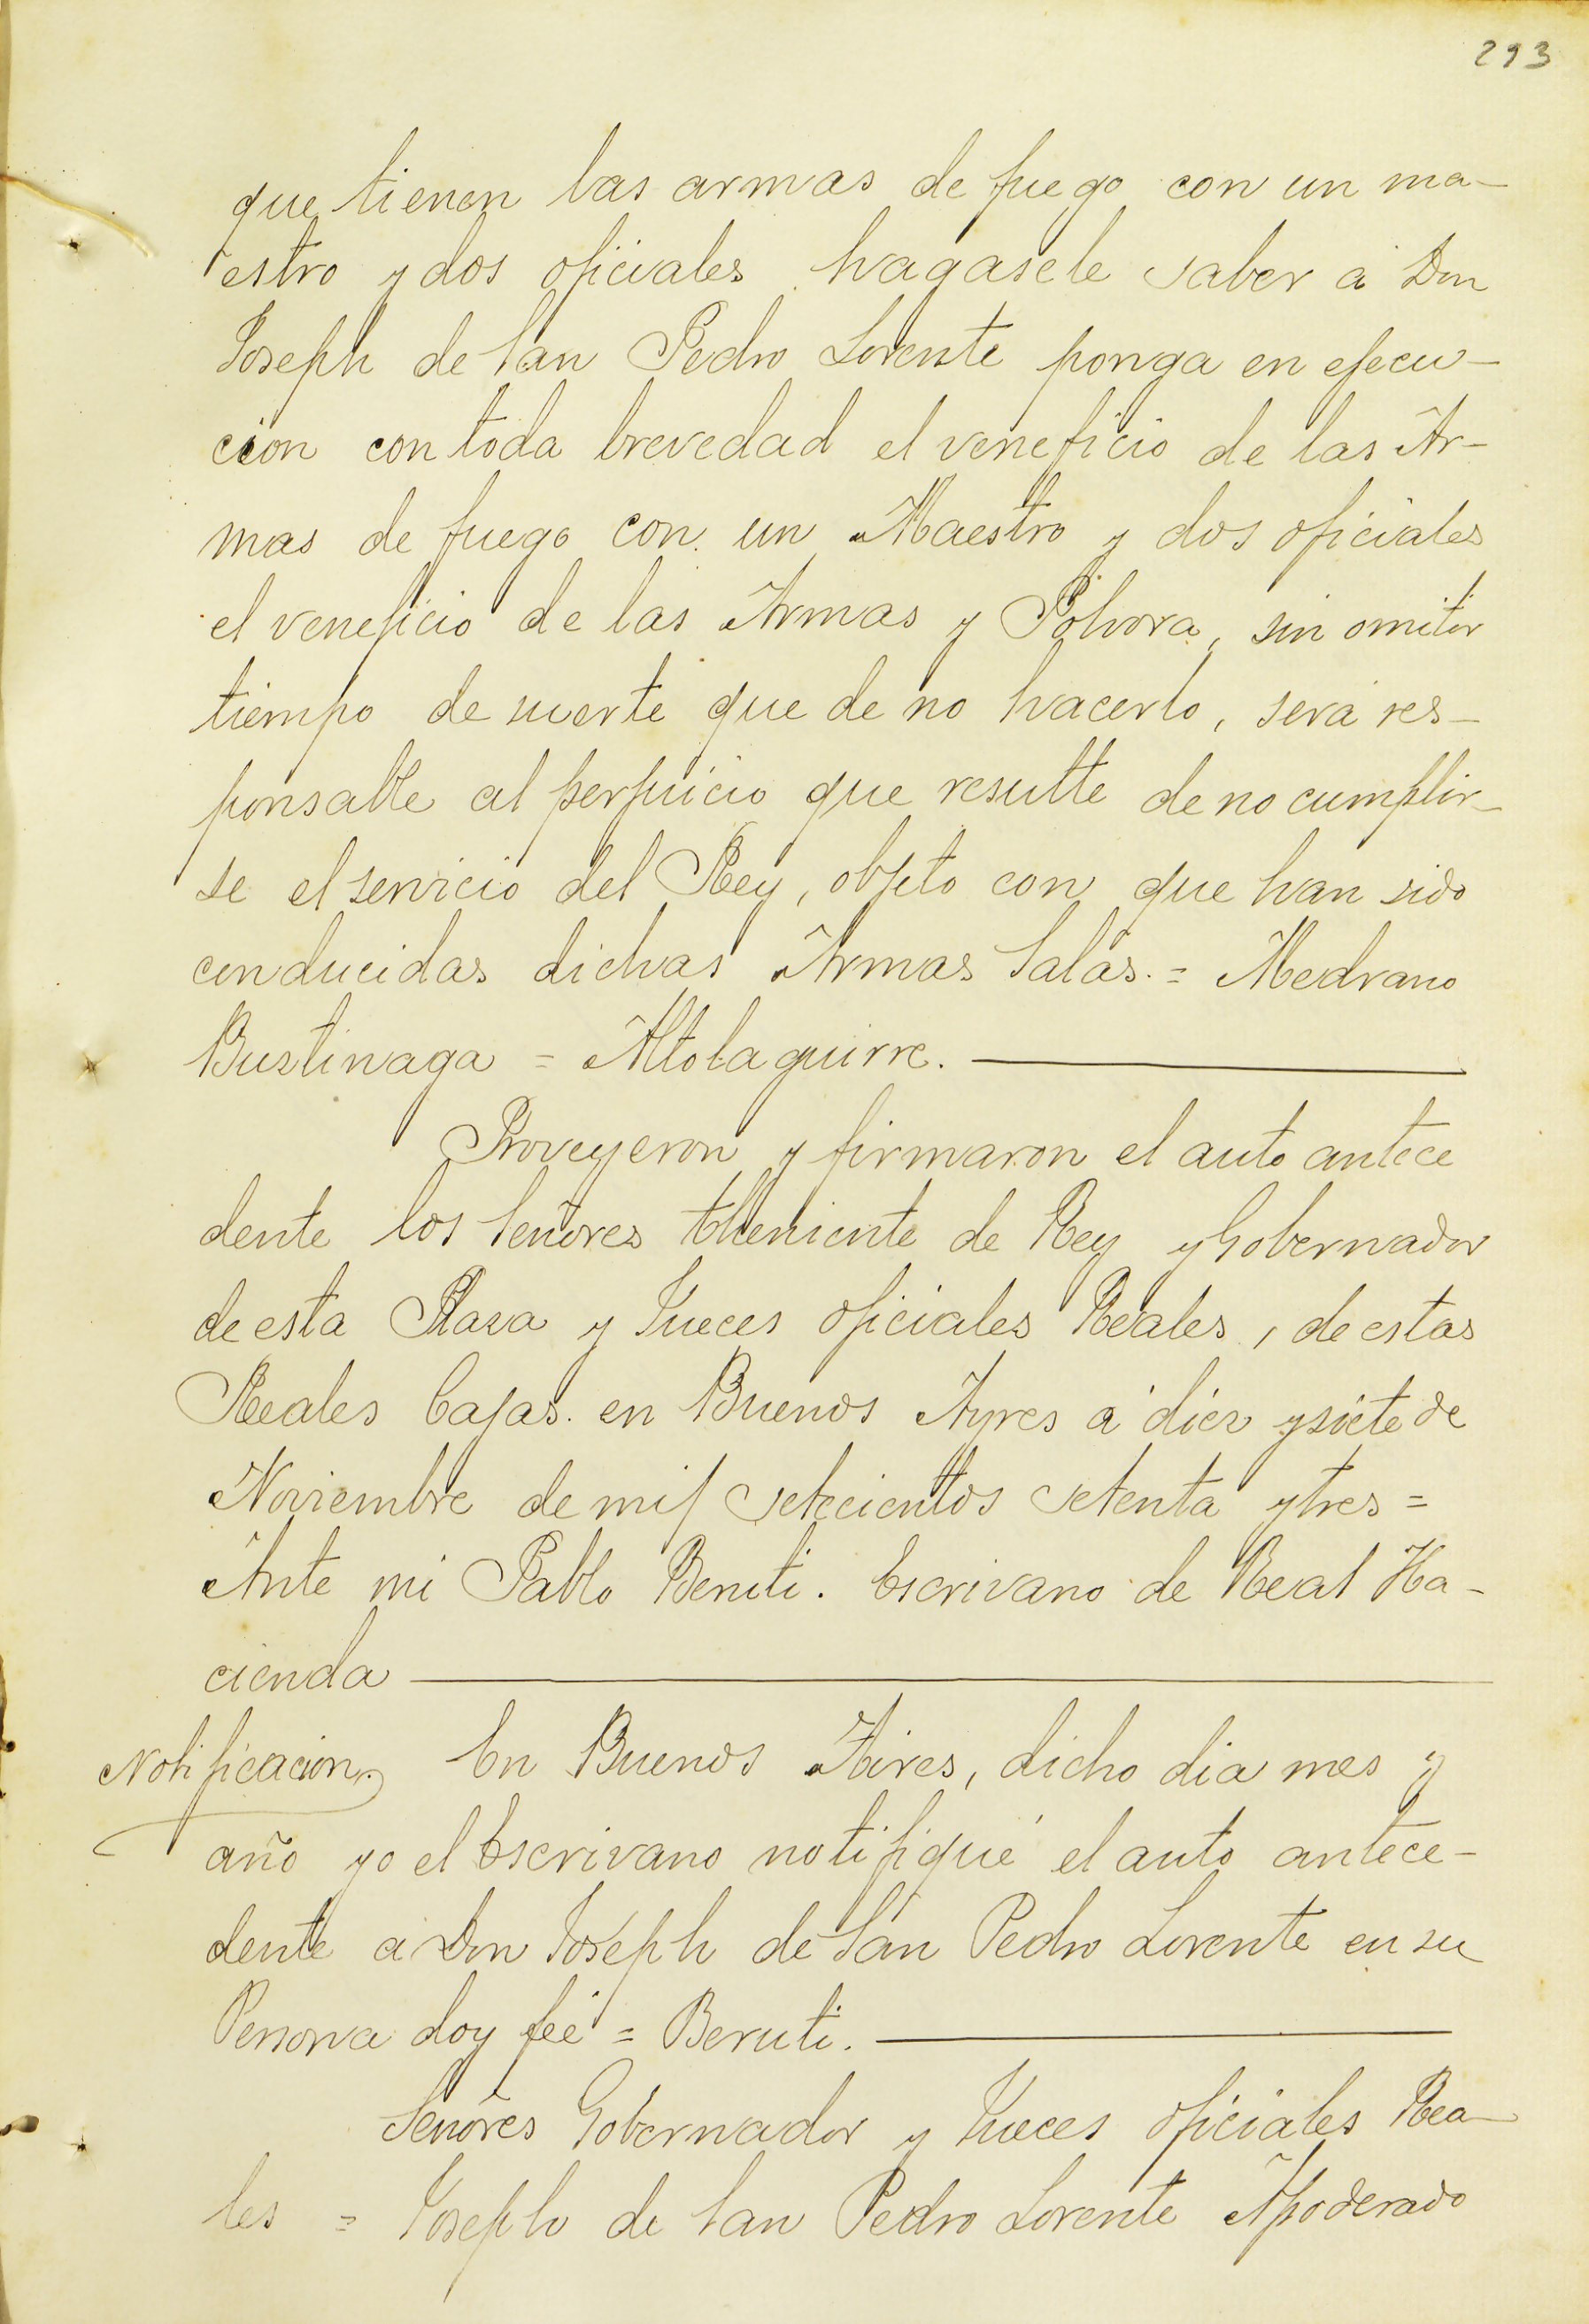 293
que tienen las armas de fuego con un ma-
estro y dos oficiales hagasele saber a Don
Joseph de San Pedro Lorente ponga en ejecu-
cion con toda brevedad el veneficio de las Ar-
mas de fuego con un Maestro y dos oficiales
el veneficio de las Armas y Pólvora, sin omitir
tiempo de suerte que de no hacerlo, será res-
ponsable al perjuicio que resulte de no cumplir-
se el servicio del Rey, objeto con que han sido
conducidas dichas Armas Salas. = Medrano
Bustinaga = Altolaguirre.
Proveyeron y firmaron el auto antece
dente los Señores Theniente de Rey y Gobernador
de esta Plaza y Jueces oficiales Reales, de estas
Reales Cajas. en Buenos Ayres á diez y siete de
Noviembre de mil setecientos setenta y tres =
Ante mi Pablo Beruti. Escrivano de Real Ha-
cienda
Notificacion. En Buenos Aires, dicho dia mes y
año yo el Escrivano notifiqué el auto antece-
dente a Don Joseph de San Pedro Lorente en su
Persona doy feé = Beruti.
Señores Gobernador y Jueces oficiales Rea-
les = Joseph de San Pedro Lorente Apoderado